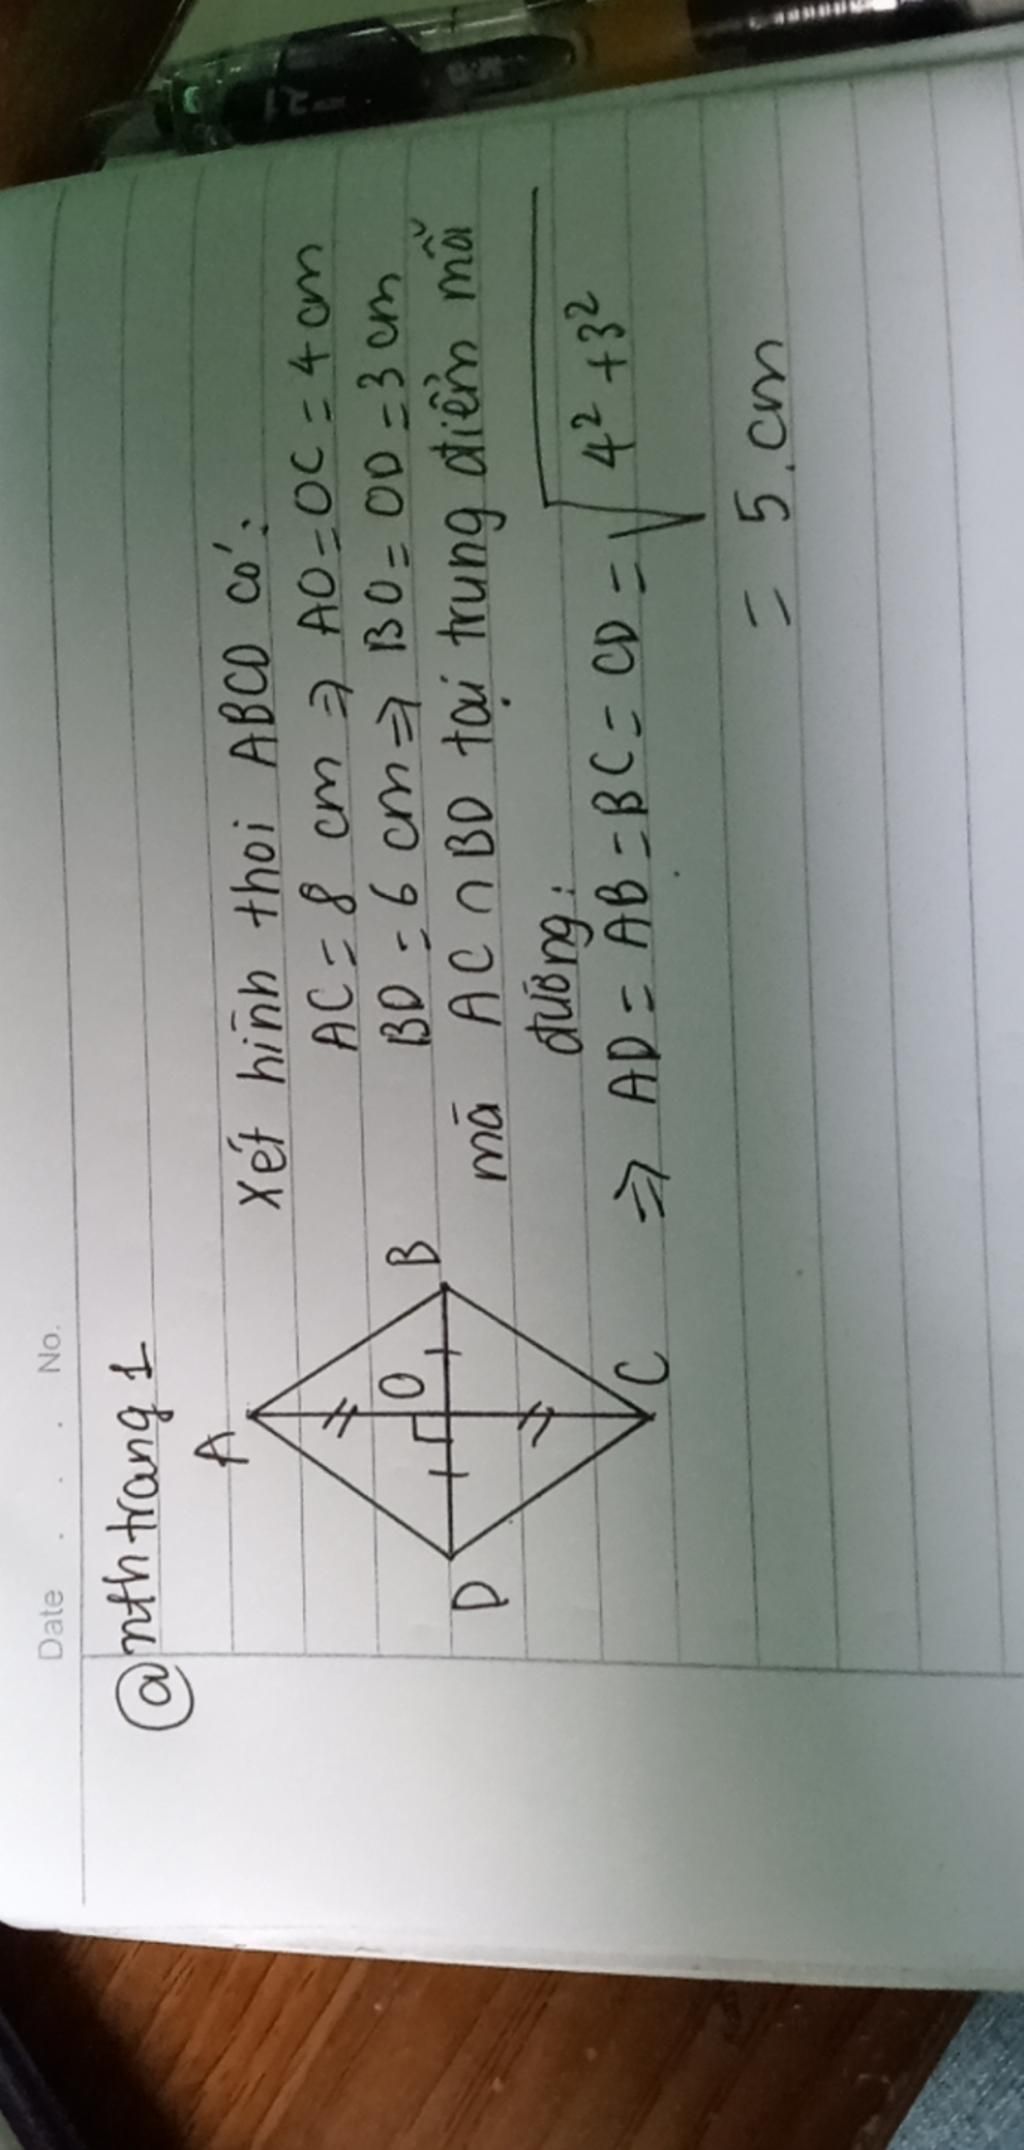 Date . . . No.
@nthtrang1
Xét hình thoi ABCD có:
AC = 8 cm ⇒ AO = OC = 4 cm
BD = 6 cm ⇒ BO = OD = 3 cm
mà AC ∩ BD tại trung điểm mỗi
đường:
⇒ AD = AB = BC = CD = √4² + 3²
= 5 cm
A
B
O
D
C